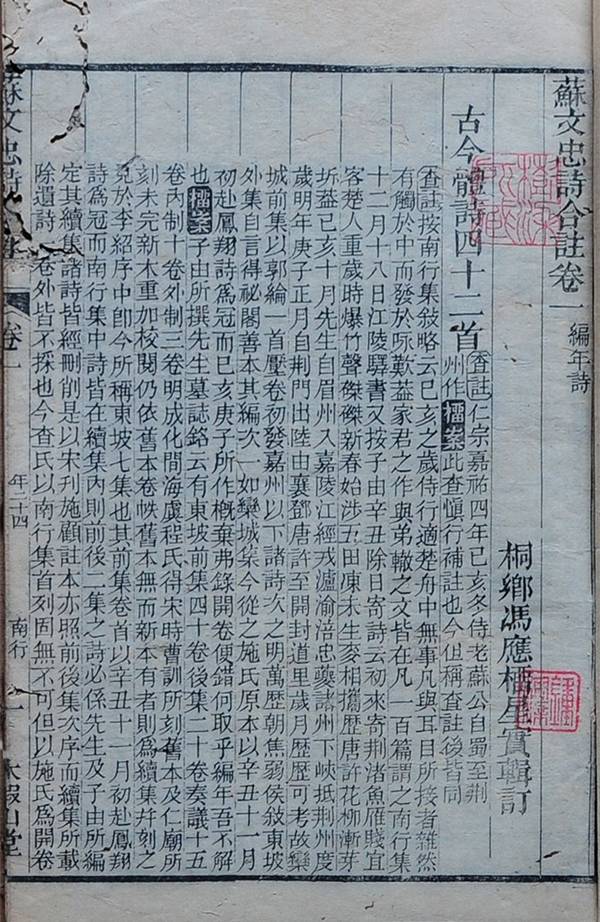 蘇文忠詩合註卷一 編年詩
桐鄉馮應榴星實輯訂
古今體詩四十二首 查註仁宗嘉祐四年己亥冬侍老蘇公自蜀至荆
州作榴案此查愼行補註也今但稱查註後皆同
查註按南行集敍略云己亥之歲侍行適楚舟中無事凡與耳目所接者雜然
有觸於中而發於咏歎葢家君之作與弟轍之文皆在凡一百篇謂之南行集
十二月十八日江陵驛書又按子由辛丑除日寄詩云初來寄荆渚魚雁賤宜
客楚人重歲時爆竹聲磔磔新春始涉五田凍未生麥相攜歷唐許花柳漸芽
坼葢己亥十月先生自眉州入嘉陵江經戎瀘渝涪忠夔諸州下峽抵荆州度
歲明年庚子正月自荆門出陸由襄鄧唐許至開封道里歲月歷歷可考故欒
城前集以郭綸一首壓卷初發嘉州以下諸詩次之明萬歷朝焦弱侯敍東坡
外集自言得秘閣善本其編次一如欒城集今從之施氏原本以辛丑十一月
初赴鳳翔詩爲冠而己亥庚子所作槪棄弗錄開卷便錯何取乎編年吾不解
也榴案子由所撰先生墓誌銘云有東坡前集四十卷後集二十卷奏議十五
卷內制十卷外制三卷明成化間海虞程氏得宋時曹訓所刻舊本及仁廟所
刻未完新木重加校閱仍依舊本卷帙舊本無而新本有者則爲續集幷刻之
見於李紹序中卽今所稱東坡七集也其前集卷首以辛丑十一月初赴鳳翔
詩爲冠而南行集中詩皆在續集內則前後二集之詩必係先生及子由所編
定其續集諸詩皆經刪削是以宋刊施顧註本亦照前後集次序而續集所載
除遺詩卷外皆不採也今查氏以南行集首刻固無不可但以施氏爲開卷
蘇文忠詩
卷一
年二十四
南行
一
山堂